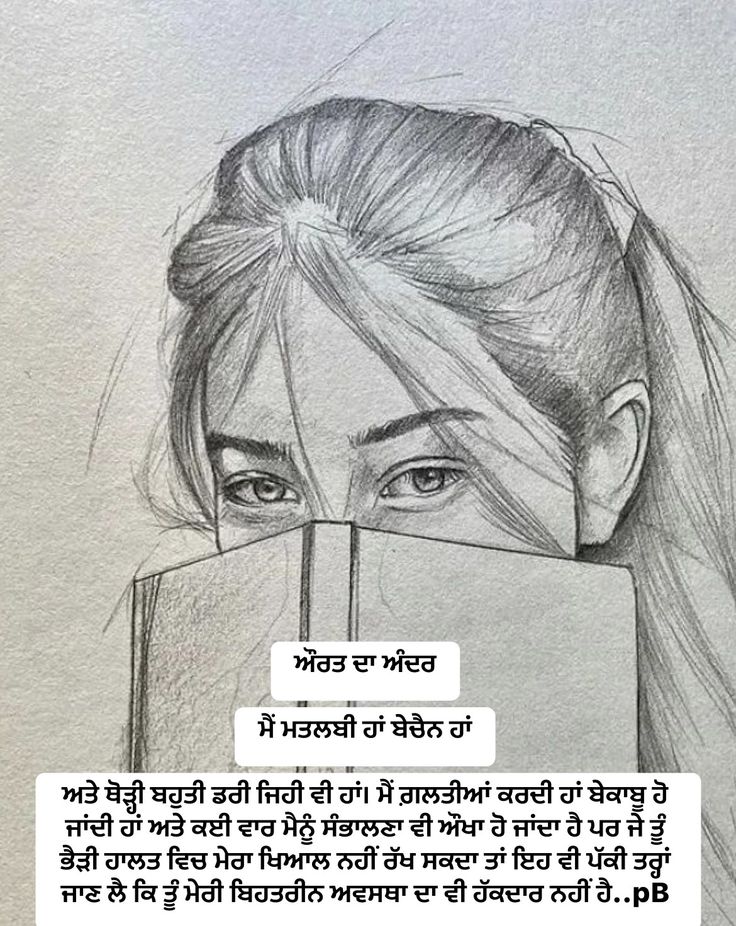 ਔਰਤ ਦਾ ਅੰਦਰ
ਮੈਂ ਮਤਲਬੀ ਹਾਂ ਬੇਚੈਨ ਹਾਂ
ਅਤੇ ਥੋੜ੍ਹੀ ਬਹੁਤੀ ਡਰੀ ਜਿਹੀ ਵੀ ਹਾਂ। ਮੈਂ ਗ਼ਲਤੀਆਂ ਕਰਦੀ ਹਾਂ ਬੇਕਾਬੂ ਹੋ
ਜਾਂਦੀ ਹਾਂ ਅਤੇ ਕਈ ਵਾਰ ਮੈਨੂੰ ਸੰਭਾਲਣਾ ਵੀ ਔਖਾ ਹੋ ਜਾਂਦਾ ਹੈ ਪਰ ਜੇ ਤੂੰ
ਭੈੜੀ ਹਾਲਤ ਵਿਚ ਮੇਰਾ ਖਿਆਲ ਨਹੀਂ ਰੱਖ ਸਕਦਾ ਤਾਂ ਇਹ ਵੀ ਪੱਕੀ ਤਰ੍ਹਾਂ
ਜਾਣ ਲੈ ਕਿ ਤੂੰ ਮੇਰੀ ਬਿਹਤਰੀਨ ਅਵਸਥਾ ਦਾ ਵੀ ਹੱਕਦਾਰ ਨਹੀਂ ਹੈ..pB